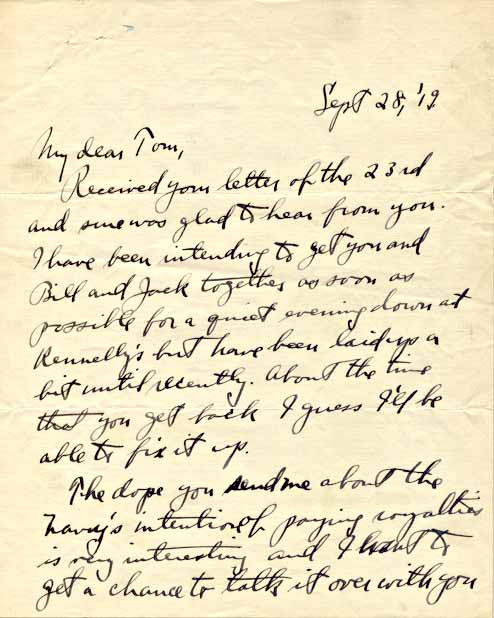 Sept 28, '19.
My dear Tom,
Received your letter of the 23rd
and sure was glad to hear from you.
I have been intending to get you and
Bill and Jack together as soon as
possible for a quiet evening down at
Kennelly's but have been laid up a
bit until recently. About the time
that you get back I guess I'll be
able to fix it up.
The dope you send me about the
Navy's intention of paying royalties
is very interesting and I want to
get a chance to talk it over with you